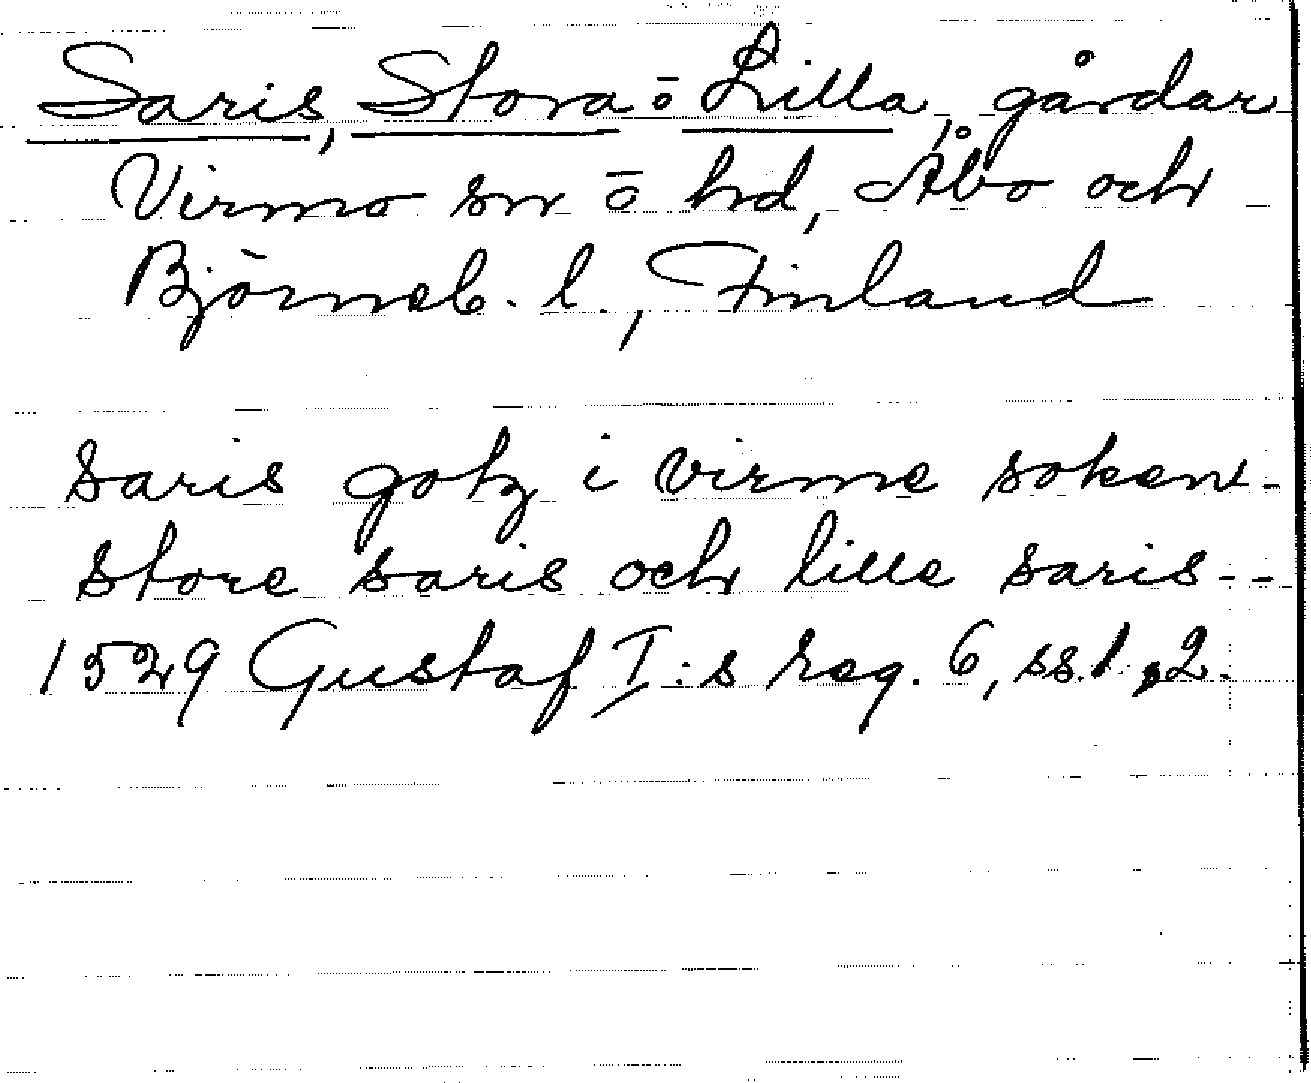 Saris, Stora o Lilla, gårdar
Virmo sn o hd, Åbo och
Björneb. l., Finland
saris gotz i virme soken -
store saris och lille saris - -
1529 Gustaf I:s reg. 6, ss. 1, 2.